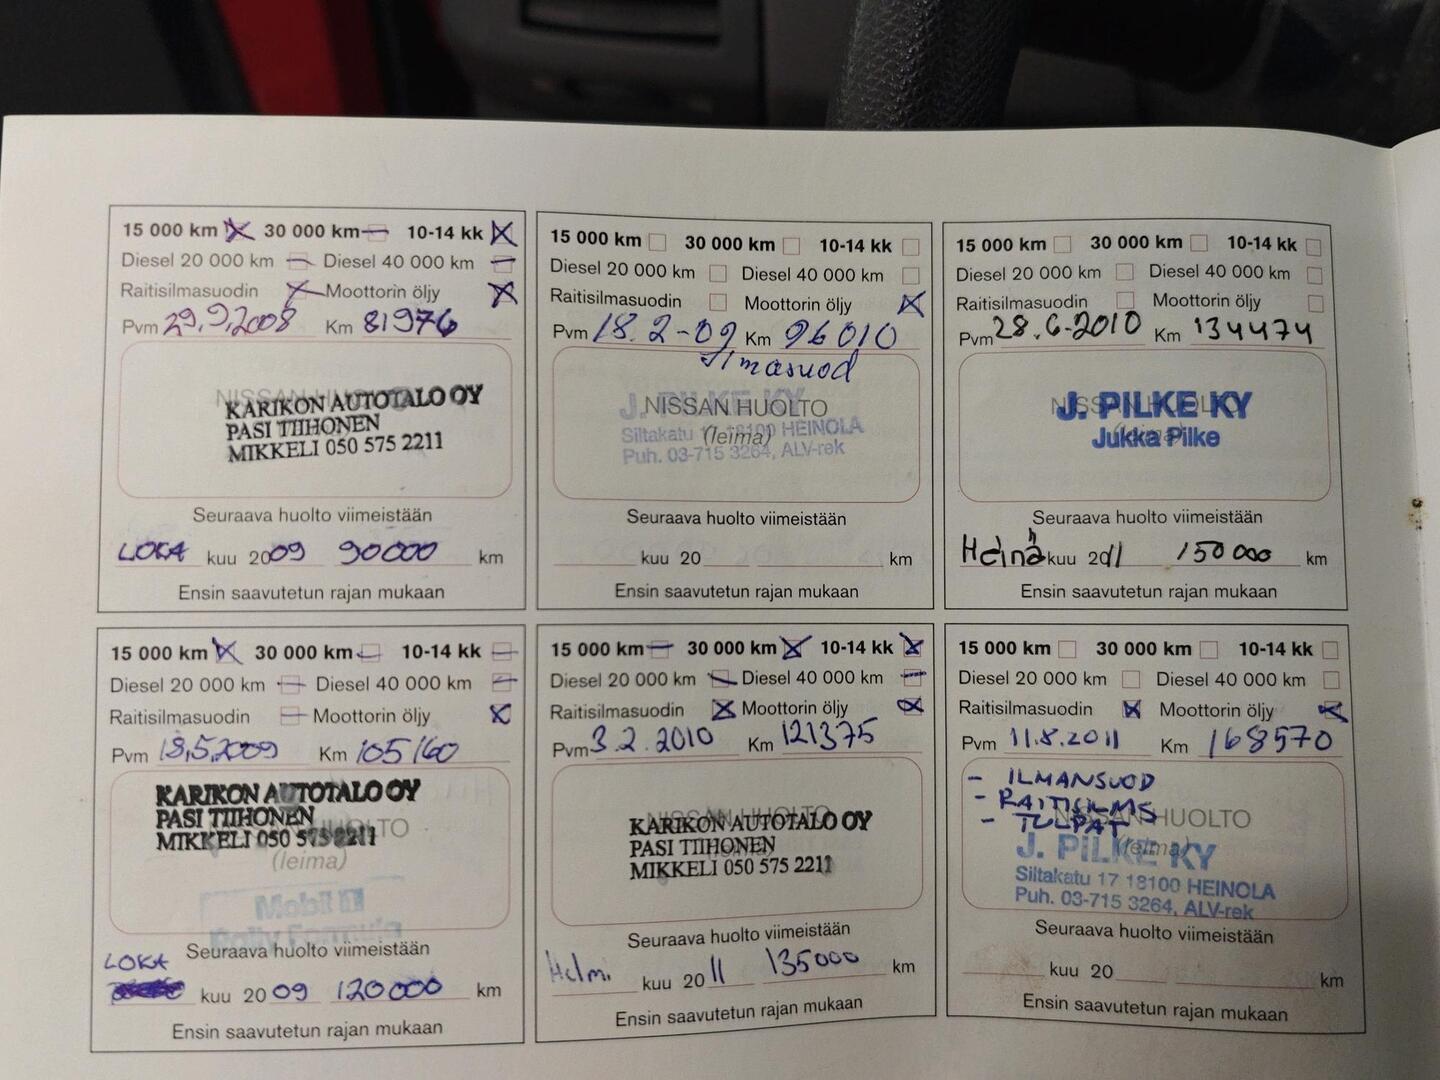 15 000 km 30 000 km 10-14 kk
Diesel 20 000 km Diesel 40 000 km
Raitisilmasuodin Moottorin öljy
Pvm 29.9.2008 Km 81976
NISSAN HUOLTO
KARIKON AUTOTALO OY
PASI TIIHONEN
MIKKELI 050 575 2211
Seuraava huolto viimeistään
LOKA kuu 2009 90000 km
Ensin saavutetun rajan mukaan
15 000 km 30 000 km 10-14 kk
Diesel 20 000 km Diesel 40 000 km
Raitisilmasuodin Moottorin öljy
Pvm 18.2-09 Km 96010
ilmasuod
J. PILKE KY
NISSAN HUOLTO
Siltakatu 17 18100 HEINOLA
(leima)
Puh. 03-715 3264, ALV-rek
Seuraava huolto viimeistään
kuu 20 km
Ensin saavutetun rajan mukaan
15 000 km 30 000 km 10-14 kk
Diesel 20 000 km Diesel 40 000 km
Raitisilmasuodin Moottorin öljy
Pvm 28.6-2010 Km 134474
J. PILKE KY
Jukka Pilke
Seuraava huolto viimeistään
Heinä kuu 2011 150000 km
Ensin saavutetun rajan mukaan
15 000 km 30 000 km 10-14 kk
Diesel 20 000 km Diesel 40 000 km
Raitisilmasuodin Moottorin öljy
Pvm 18.5.2009 Km 105160
KARIKON AUTOTALO OY
PASI TIIHONEN
MIKKELI 050 575 2211
(leima)
Mobil 1
Seuraava huolto viimeistään
LOKA
kuu 2009 120000 km
Ensin saavutetun rajan mukaan
15 000 km 30 000 km 10-14 kk
Diesel 20 000 km Diesel 40 000 km
Raitisilmasuodin Moottorin öljy
Pvm 3.2.2010 Km 121375
NISSAN HUOLTO
KARIKON AUTOTALO OY
PASI TIIHONEN
MIKKELI 050 575 2211
Seuraava huolto viimeistään
Helmi kuu 2011 135000 km
Ensin saavutetun rajan mukaan
15 000 km 30 000 km 10-14 kk
Diesel 20 000 km Diesel 40 000 km
Raitisilmasuodin Moottorin öljy
Pvm 11.8.2011 Km 168570
- ILMANSUOD
- RAITISILMS
- TULPAT
NISSAN HUOLTO
(leima)
J. PILKE KY
Siltakatu 17 18100 HEINOLA
Puh. 03-715 3264, ALV-rek
Seuraava huolto viimeistään
kuu 20 km
Ensin saavutetun rajan mukaan